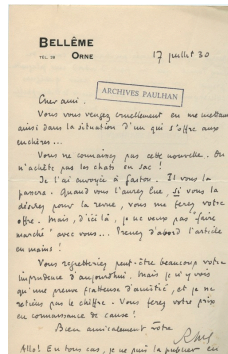 BELLÊME
TEL. 28 ORNE
17 juillet 30
ARCHIVES PAULHAN
Cher ami.
Vous vous vengez cruellement en me mettant
ainsi dans la situation d'un qui s'offre aux
enchères...
Vous ne connaissez pas cette nouvelle. On
n'achète pas les chats en sac !
Je l'ai envoyée à Pastor. Il vous la
passera. Quand vous l'aurez lue, si vous la
désirez pour la revue, vous me ferez votre
offre. Mais, d'ici là, je ne veux pas "faire
marché" avec vous... Prenez d'abord l'article
en mains !
Vous regretteriez peut-être beaucoup votre
imprudence d'aujourd'hui. Mais je n'y vois
qu'une preuve flatteuse d'amitié, et je ne
retiens pas le chiffre. Vous ferez votre prix
en connaissance de cause !
Bien amicalement vôtre
Allo! En tous cas, je ne puis la publier en